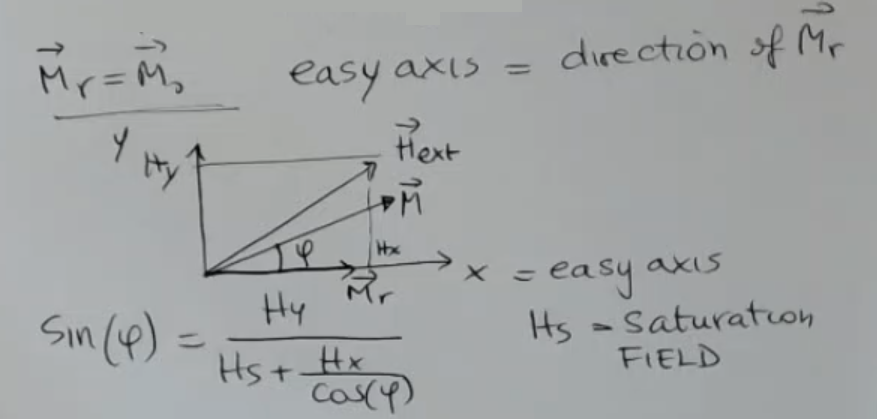 M⃗r = M⃗s easy axis = direction of M⃗r
y
Hy
H⃗ext
M⃗
φ Hx
M⃗r
x = easy axis
Sin(φ) = Hy / (Hs + Hx / cos(φ))
Hs = Saturation
FIELD